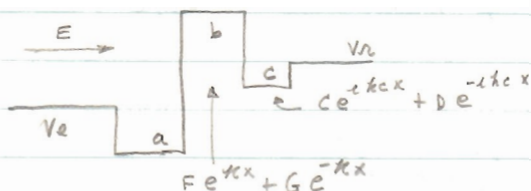 E
b
Vr
c
Ce^{ikcx} + De^{-ikcx}
Vl
a
Fe^{κx} + Ge^{-κx}